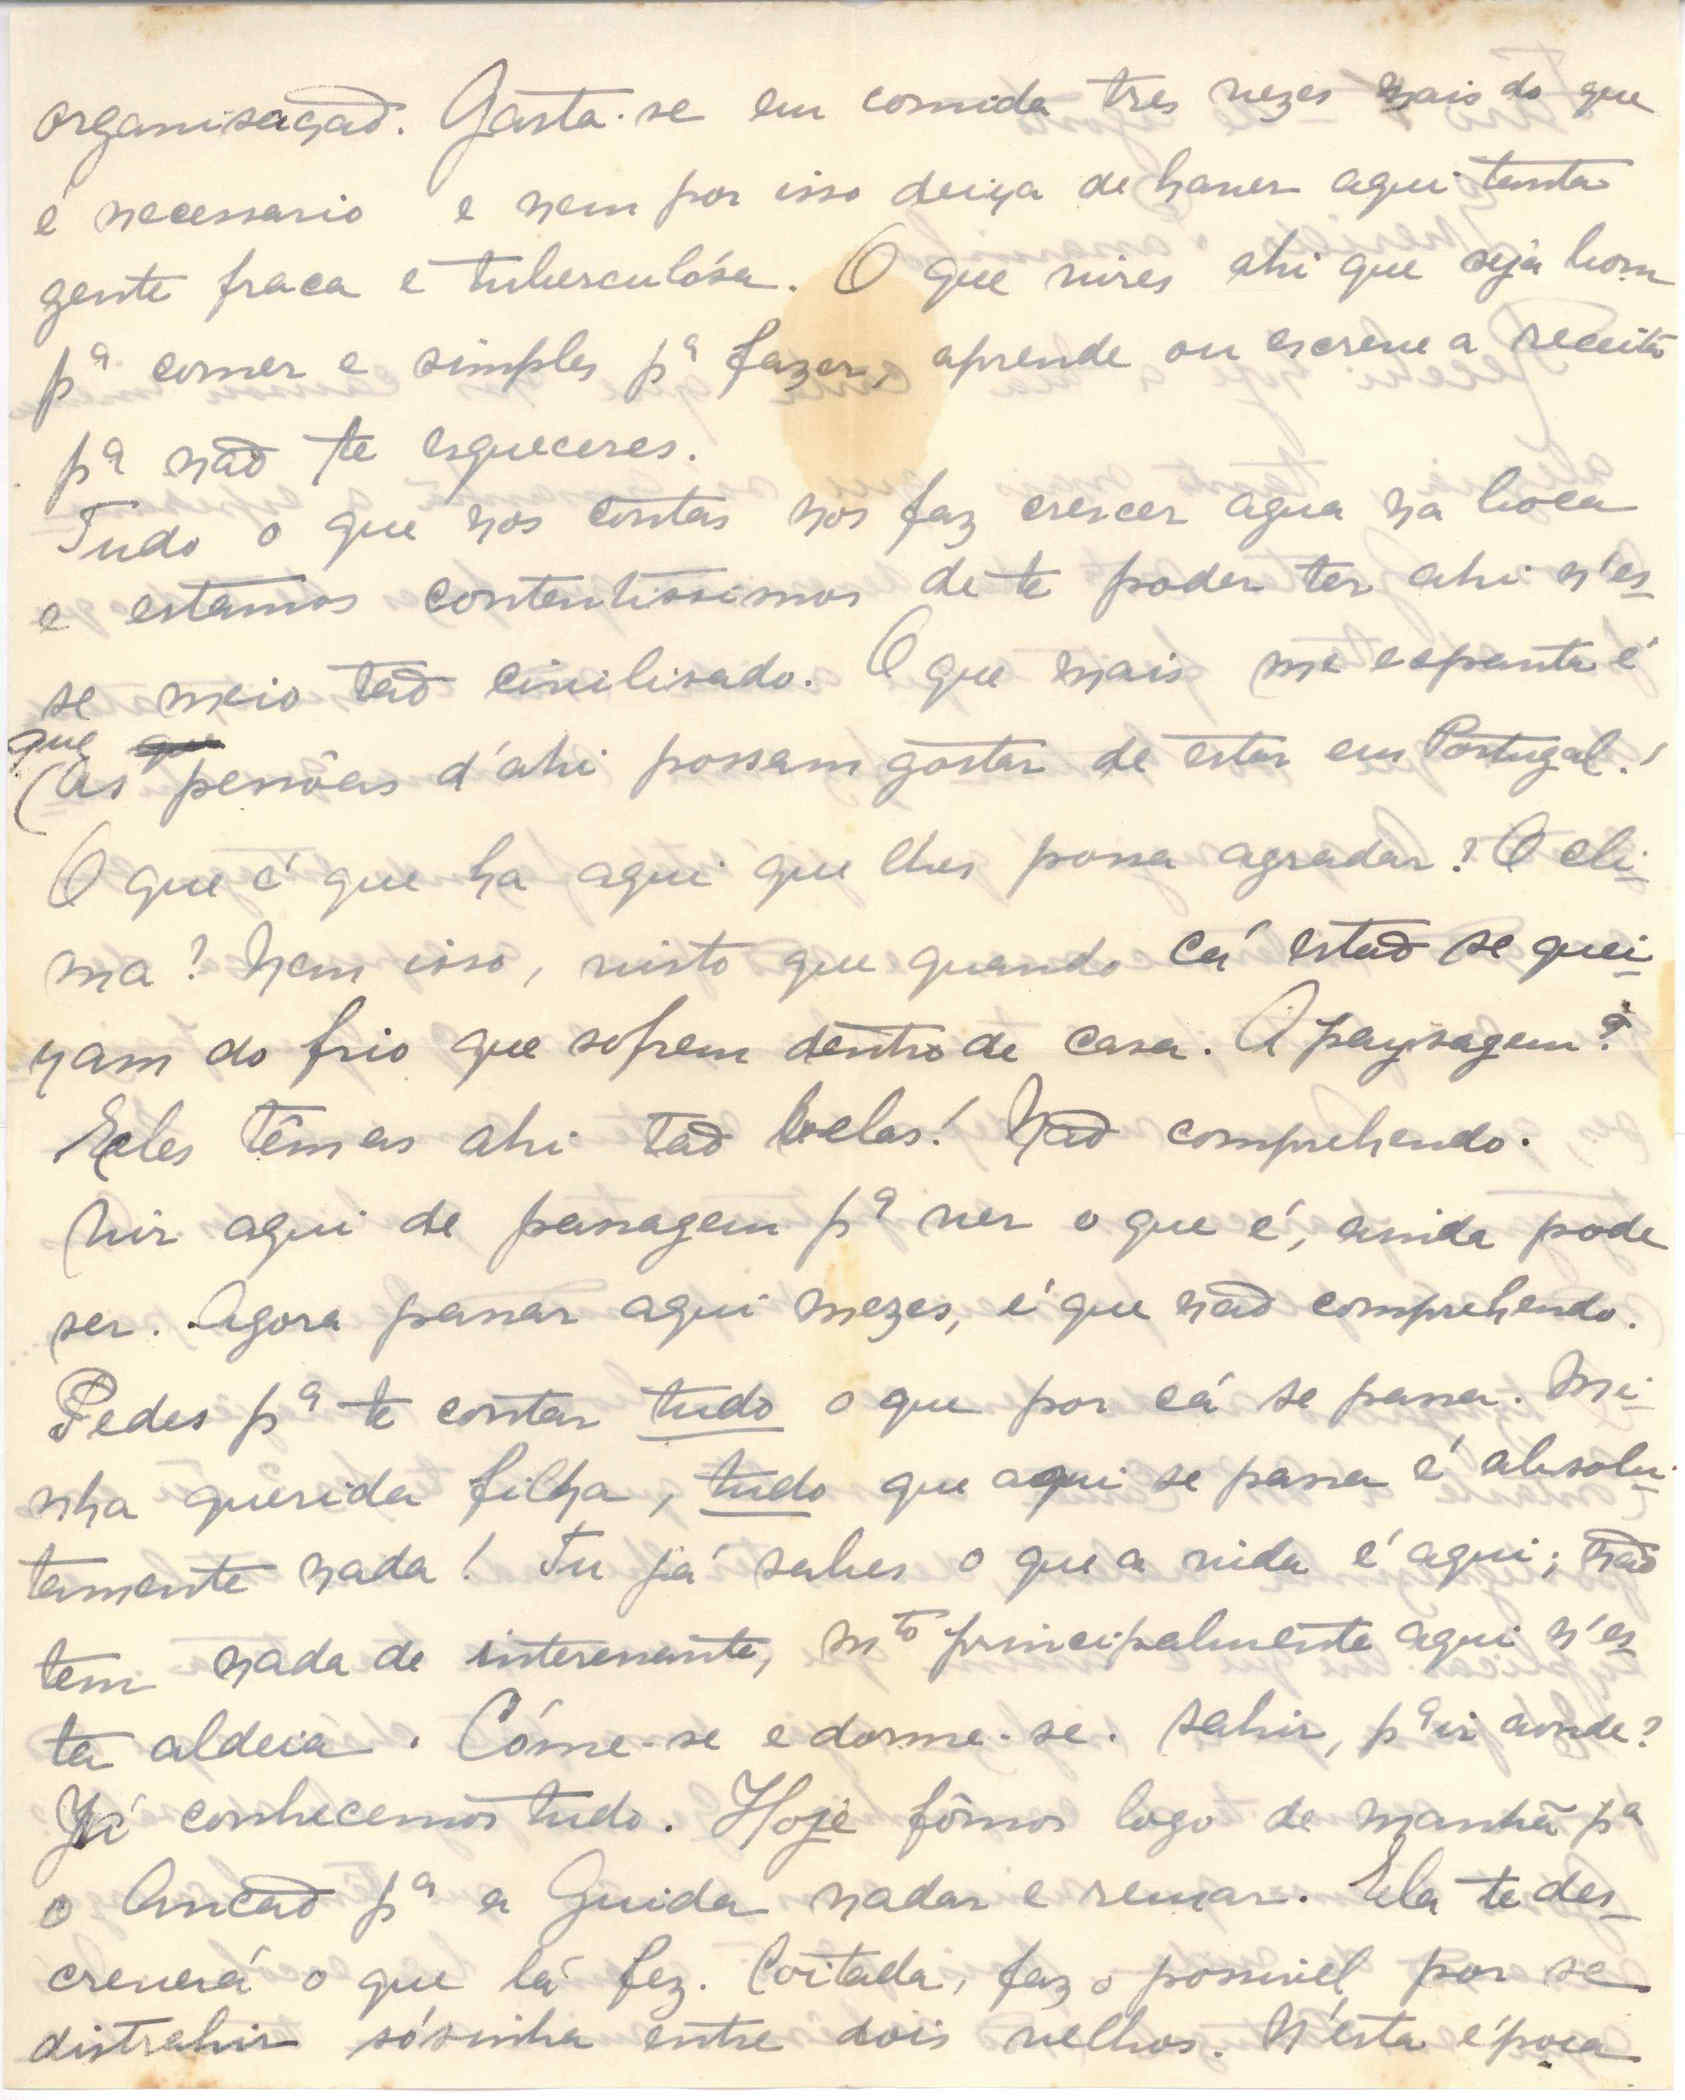 organisação. Gasta-se em comida tres vezes mais do que
é necessario e nem por isso deixa de haver aqui tanta
gente fraca e tuberculósa. O que vires ahi que seja bom
pª comer e simples pª fazer, aprende ou escreve a receita
pª não te esqueceres.
Tudo o que nos contas nos faz crescer agua na boca
e estamos contentissimos de te poder ter ahi n'es-
se meio tão civilisado. O que mais me espanta é
que as pessôas d'ahi possam gostar de estar em Portugal.!
O que é que ha aqui que lhes possa agradar? O cli-
ma? Nem isso, visto que quando cá estão se quei-
xam do frio que sofrem dentro de casa. A paysagem?
Eles têm as ahi tão belas! Não comprehendo.
Vir aqui de passagem pª ver o que é, ainda pode
ser. Agora passar aqui mezes, é que não comprehendo.
Pedes pª te contar tudo o que por cá se passa. Mi-
nha querida filha, tudo que aqui se passa é absolu-
tamente nada! Tu já sabes o que a vida é aqui; não
tem nada de interessante, mto principalmente aqui n'es-
ta aldeia. Cóme-se e dorme-se. Sahir, pª ir aonde?
Já conhecemos tudo. Hoje fômos logo de manhã pª
o Ancão pª a Guida nadar e remar. Ela te des-
creverá o que lá fez. Coitada, faz o possivel por se
distrahir sósinha entre dois velhos. N'esta época